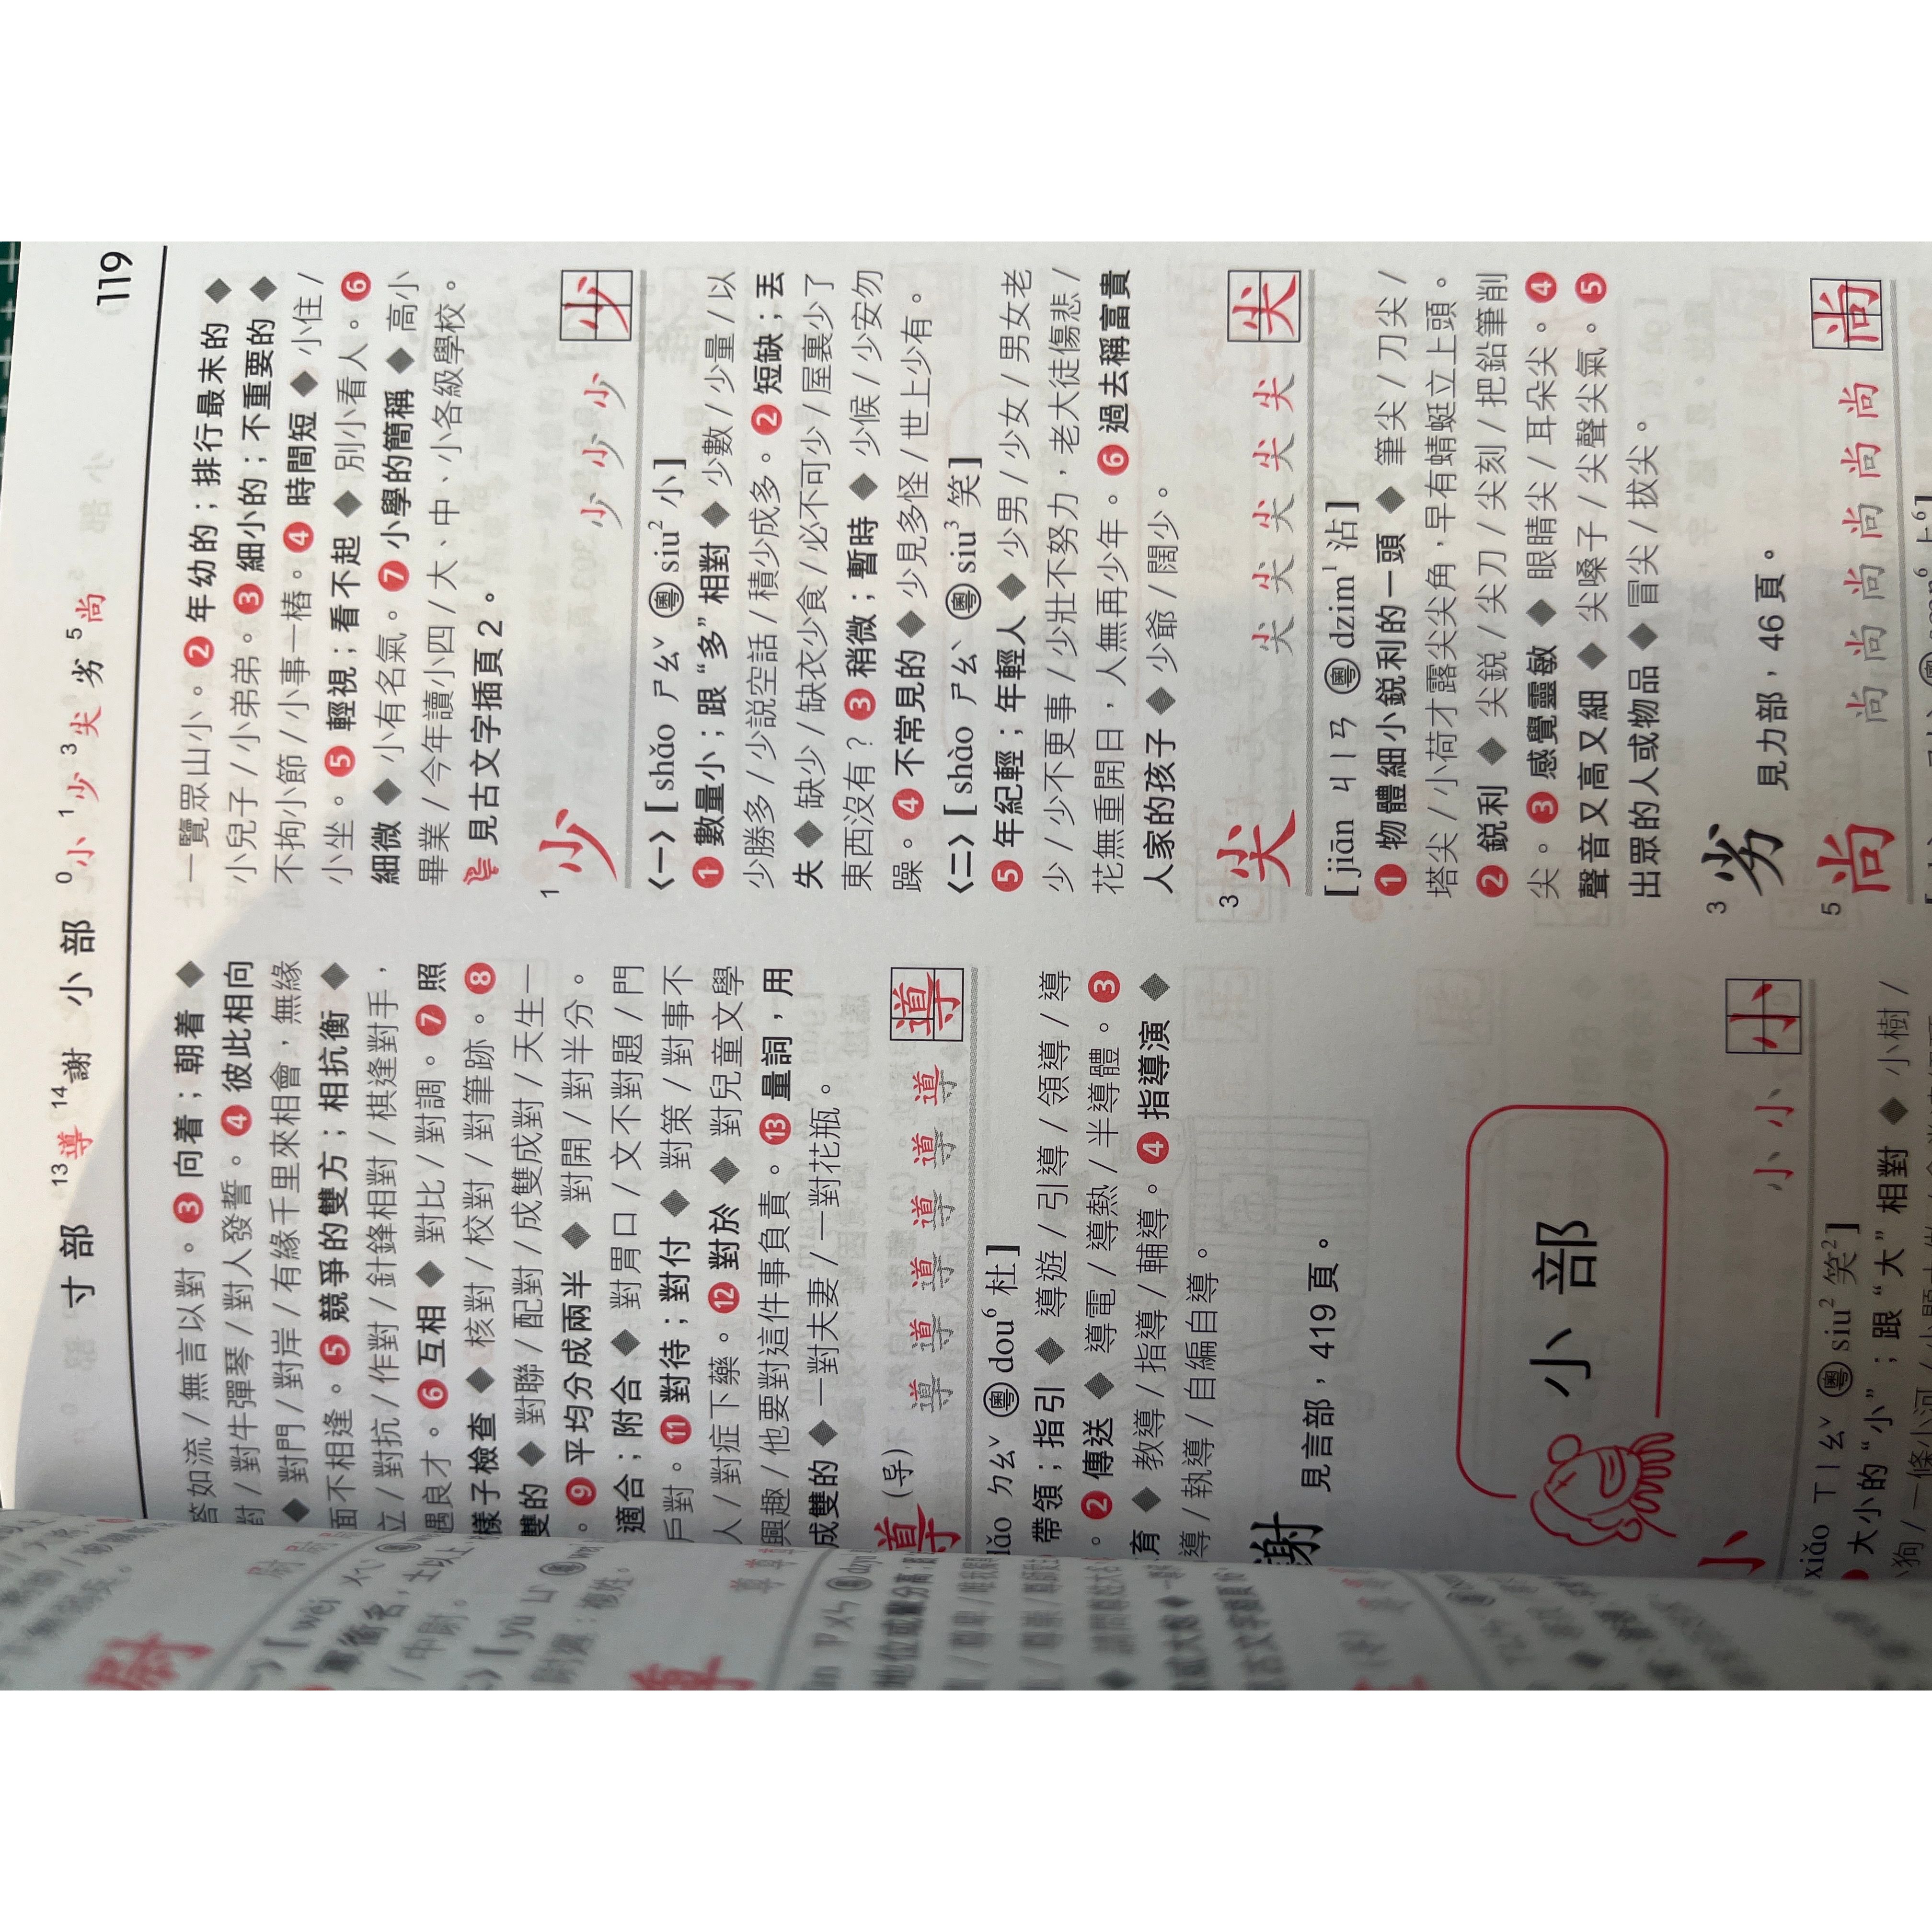 寸部 13導 14謝 小部 0小 1少 3尖 劣 5尚 119
答如流/無言以對。❸向着；朝着◆
對/對牛彈琴/對人發誓。❹彼此相向
◆對門/對岸/有緣千里來相會，無緣
面不相逢。❺競爭的雙方；相抗衡◆
立/對抗/作對/針鋒相對/棋逢對手，
遇良才。❻互相◆對比/對調。❼照
樣子檢查◆核對/校對/對筆跡。❽
雙的◆對聯/配對/成雙成對/天生一
。❾平均分成兩半◆對開/對半分。
適合；附合◆對胃口/文不對題/門
戶對。⓫對待；對付◆對策/對事不
人/對症下藥。⓬對於◆對兒童文學
興趣/他要對這件事負責。⓭量詞，用
成雙的◆一對夫妻/一對花瓶。
導(导) 導導導導導導 導
dǎo ㄉㄠˇ 粵dou⁶ 杜]
帶領；指引◆導遊/引導/領導/導
。❷傳送◆導電/導熱/半導體。❸
育◆教導/指導/輔導。❹指導演◆
導/執導/自編自導。
謝 見言部，419頁。
小部
小 小小 小
xiǎo ㄒㄧㄠˇ 粵siu² 笑²]
大小的“小”；跟“大”相對◆小樹/
狗/一條小河/
一覽眾山小。❷年幼的；排行最末的◆
小兒子/小弟弟。❸細小的；不重要的◆
不拘小節/小事一樁。❹時間短◆小住/
小坐。❺輕視；看不起◆別小看人。❻
細微◆小有名氣。❼小學的簡稱◆高小
畢業/今年讀小四/大、中、小各級學校。
見古文字插頁2。
1少 少少少 少
〈一〉[shǎo ㄕㄠˇ 粵siu² 小]
❶數量小；跟“多”相對◆少數/少量/以
少勝多/少說空話/積少成多。❷短缺；丟
失◆缺少/缺衣少食/必不可少/屋裏少了
東西沒有？❸稍微；暫時◆少候/少安勿
躁。❹不常見的◆少見多怪/世上少有。
〈二〉[shào ㄕㄠˋ 粵siu³ 笑]
❺年紀輕；年輕人◆少男/少女/男女老
少/少不更事/少壯不努力，老大徒傷悲/
花無重開日，人無再少年。❻過去稱富貴
人家的孩子◆少爺/闊少。
3尖 尖尖尖尖尖 尖
[jiān ㄐㄧㄢ 粵dzim¹ 沾]
❶物體細小銳利的一頭◆筆尖/刀尖/
塔尖/小荷才露尖尖角，早有蜻蜓立上頭。
❷銳利◆尖銳/尖刀/尖刻/把鉛筆削
尖。❸感覺靈敏◆眼睛尖/耳朵尖。❹
聲音又高又細◆尖嗓子/尖聲尖氣。❺
出眾的人或物品◆冒尖/拔尖。
3劣 見力部，46頁。
5尚 尚尚尚尚尚尚 尚